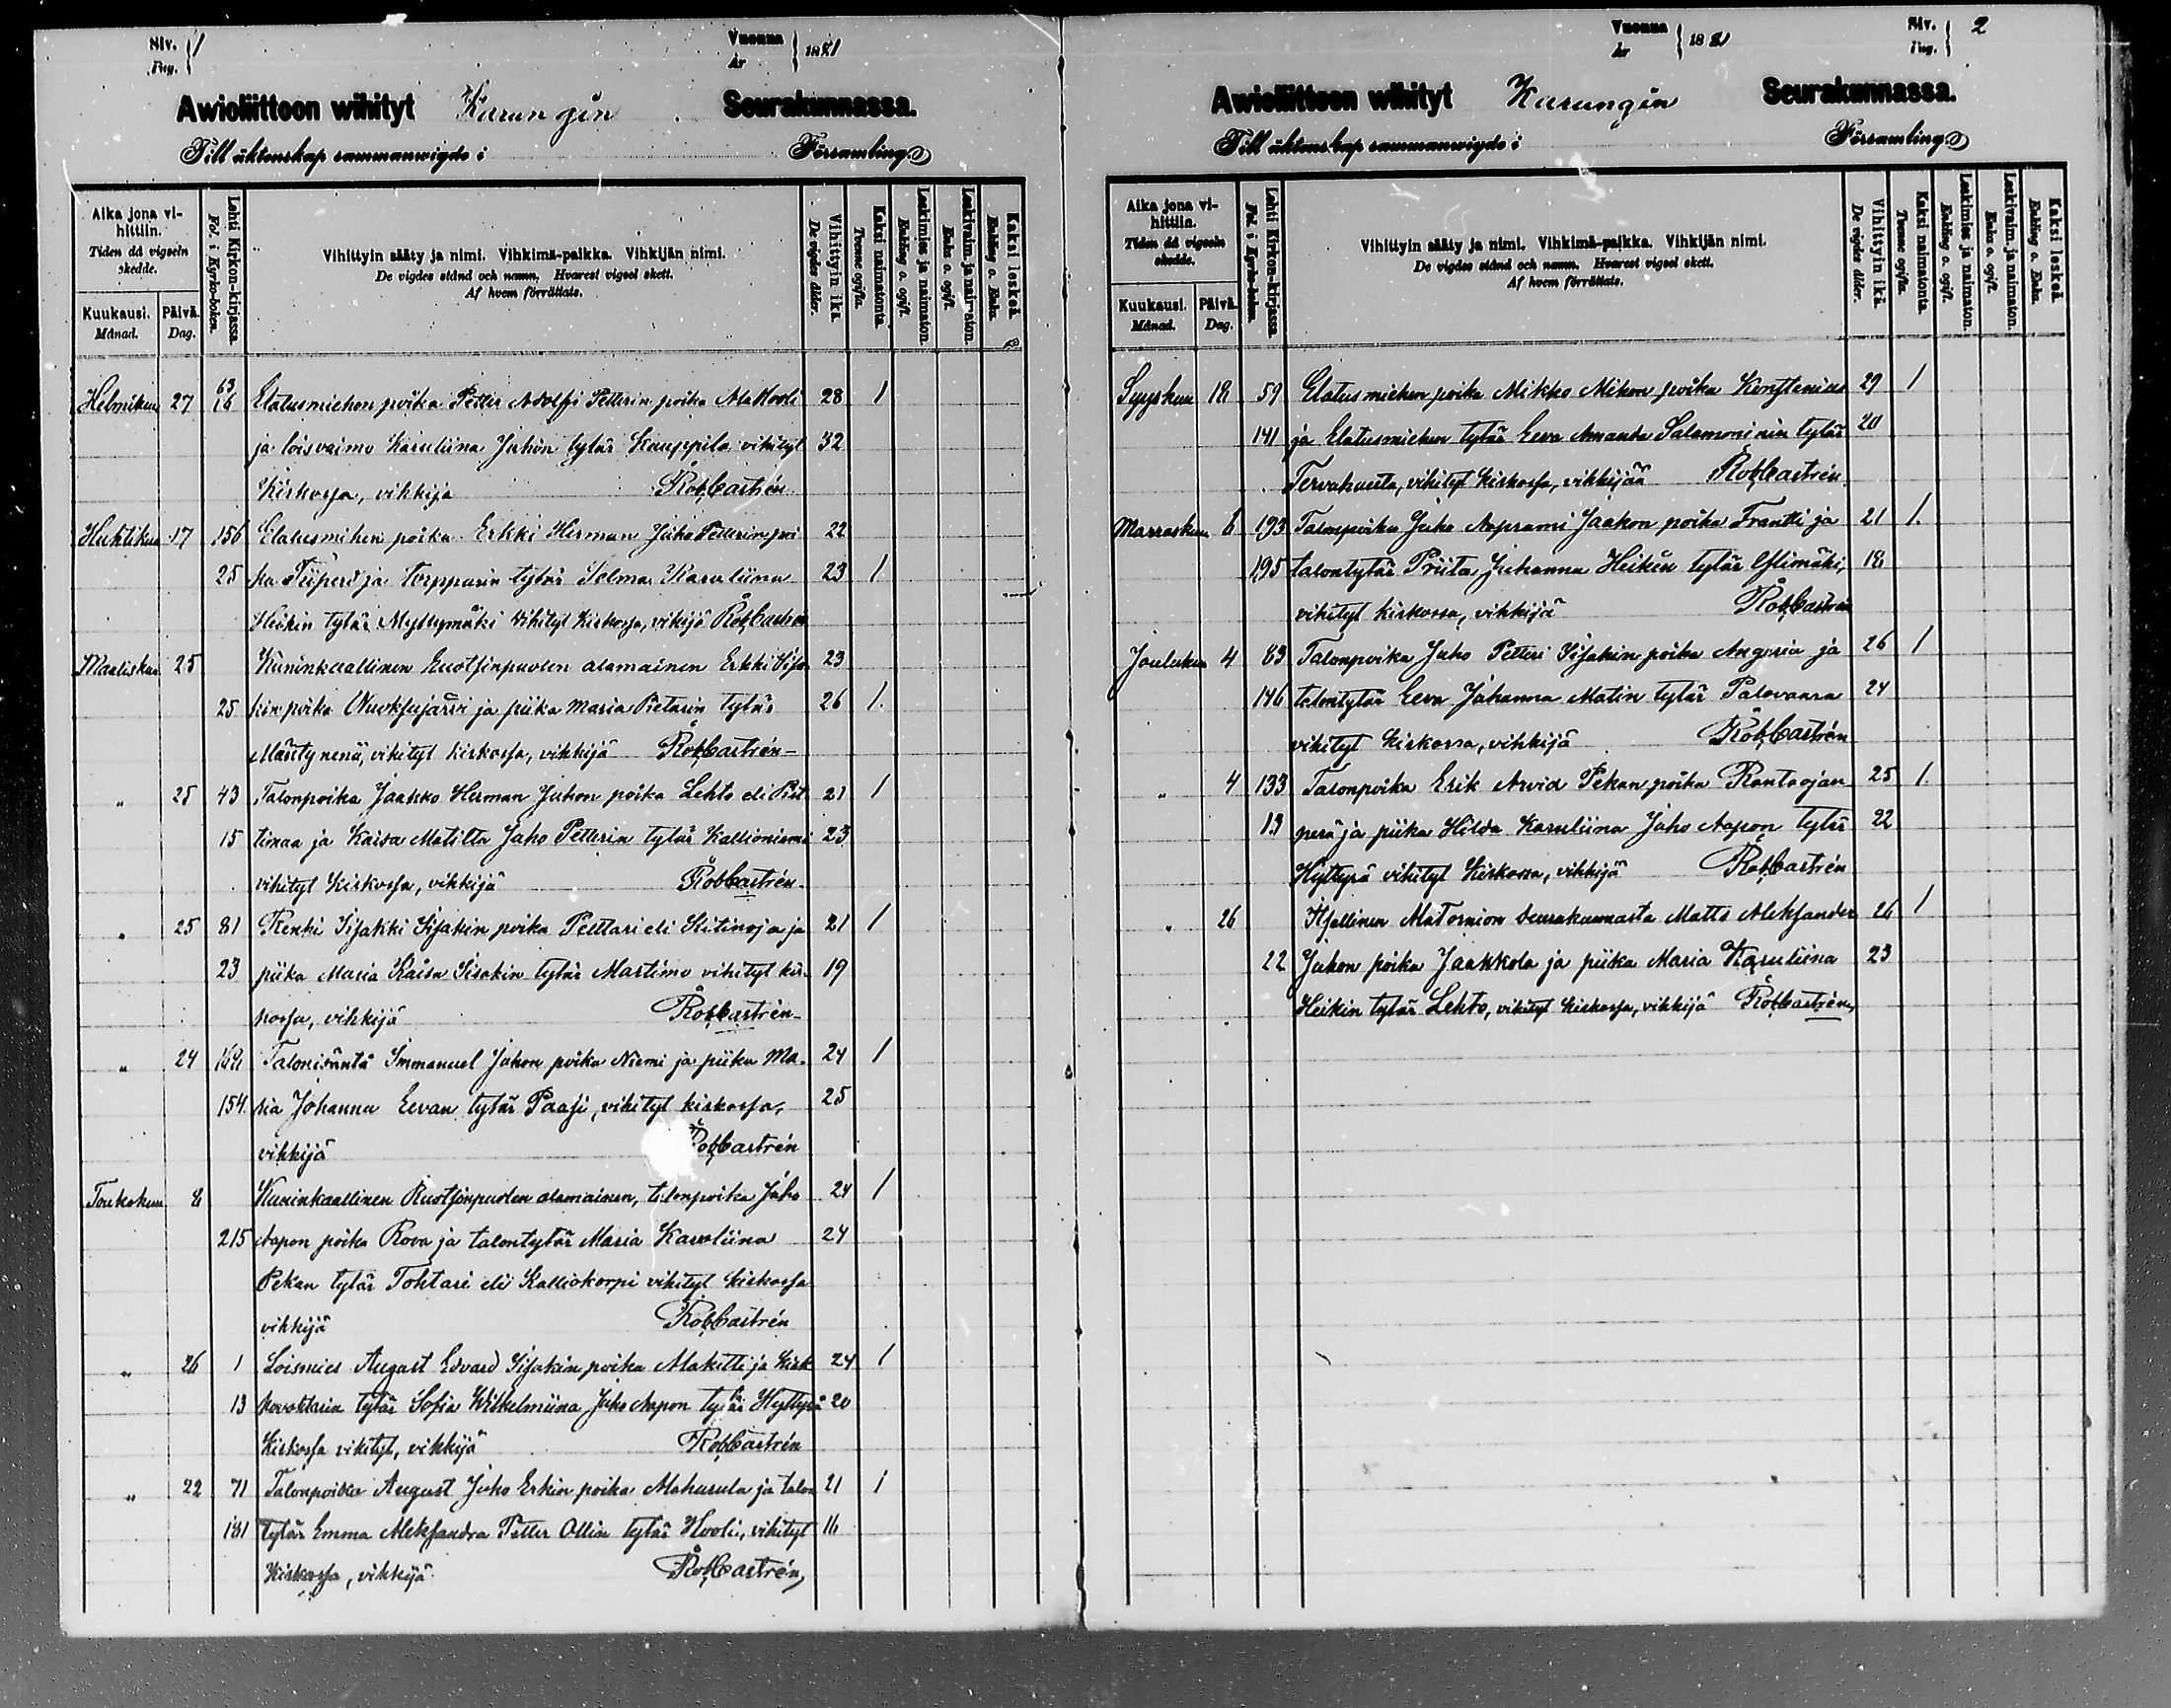 Siv. 1
Pag.
Vuonna 1881
År
Awioliittoon wihityt Karungin Seurakunnassa.
Till äktenskap sammanwigde i Församling.
Aika jona vihittiin.
Tiden då vigseln skedde.
Kuukausi.
Månad.
Päivä.
Dag.
Lehti Kirkon-kirjassa.
Fol. i Kyrko-boken.
Vihittyin sääty ja nimi. Vihkimä-paikka. Vihkijän nimi.
De vigdes stånd och namn. Hvarest vigsel skett.
Af hvem förrättats.
Vihittyin ikä.
De vigdes ålder.
Kaksi naimatonta.
Tvenne ogifta.
Leskimies ja naimaton.
Enkling o. ogift.
Leskivaim. ja naimaton.
Enka o. ogift.
Kaksi leskeä.
Enkling o. Enka.
Helmikuu 27 63/16 Elatusmiehen poika Petter Adolfi Petterin poika AlaKooli 28 1
ja loisvaimo Karuliina Juhon tytär Kauppila vihityt 32
Kirkossa, vihkijä RobCastrén
Huhtikuu 17 156 Elatusmihen poika Erkki Herman Juho Petterin poi 22
25 ka Tiiperi ja torpparin tytär Selma Karuliina 23 1
Heikin tytär Myllymäki Vihityt Kirkossa, vihkijä RobCastrén
Maaliskuu 25 Kuninkaallinen Ruotsinpuolen alamainen Erkki Iisa 23
25 kin poika Vuoksujärvi ja piika Maria Pietarin tytär 26 1.
Mäntynenä, vihityt kirkossa, vihkijä RobCastrén
" 25 43 Talonpoika Jaakko Herman Juhon poika Lehto eli Piit 21 1
15 timaa ja Kaisa Matilta Juho Petterin tytär Kallioniemi 23
vihityt Kirkossa, vihkijä RobCastrén
" 25 81 Renki Iisakki Iisakin poika Pelttari eli Kitinoja ja 21 1
23 piika Maria Kaisa Iisakin tytär Martimo vihityt kir- 19
kossa, vihkijä RobCastrén
" 24 169 Talonisäntä Immanuel Juhon poika Niemi ja piika Ma- 24 1
154 ria Johanna Eevan tytär Paasi, vihityt kirkossa, 25
vihkijä RobCastrén
Toukokuu 8 Kuninkaallinen Ruotsinpuolen alamainen, talonpoika Juho 24 1
215 Aapon poika Rova ja talontytär Maria Karoliina 24
Pekan tytär Tohtari eli Kalliokorpi vihityt kirkossa
vihkijä RobCastrén
" 26 1 Loismies August Edvard Iisakin poika Alakitti ja Kirk 24 1
13 kovoktarin tytär Sofia Wilhelmiina Juho Aapon tytär Hyttyrä 20
Kirkossa vihityt, vihkijä RobCastrén
" 22 71 Talonpoika August Juho Erkin poika Mahurula ja talon 21 1
181 tytär Emma Aleksandra Petter Ollin tytär Kooli, vihityt 16
Kirkossa, vihkijä RobCastrén
Siv. 2
Pag.
Vuonna 1881
År
Awioliittoon wihityt Karungin Seurakunnassa.
Till äktenskap sammanwigde i Församling.
Aika jona vihittiin.
Tiden då vigseln skedde.
Kuukausi.
Månad.
Päivä.
Dag.
Lehti Kirkon-kirjassa.
Fol. i Kyrko-boken.
Vihittyin sääty ja nimi. Vihkimä-paikka. Vihkijän nimi.
De vigdes stånd och namn. Hvarest vigsel skett.
Af hvem förrättats.
Vihittyin ikä.
De vigdes ålder.
Kaksi naimatonta.
Tvenne ogifta.
Leskimies ja naimaton.
Enkling o. ogift.
Leskivaim. ja naimaton.
Enka o. ogift.
Kaksi leskeä.
Enkling o. Enka.
Syyskuu 18 59 Elatusmiehen poika Mikko Mikon poika Konstenius 29 1
141 ja Elatusmiehen tytär Eeva Amanda Salamoninin tytär 20
Tervahauta, vihityt Kirkossa, vihkijää RobCastrén
Marraskuu 6 193 Talonpoika Juho Aaprami Jaakon poika Frantti ja 21 1.
195 talontytär Priita Juhanna Heikin tytär Ylimäki, 18
vihityt kirkossa, vihkijä RobCastrén
Joulukuu 4 83 Talonpoika Juho Petteri Iisakin poika Angeria ja 26 1
146 talontytär Eeva Johanna Matin tytär Palovaara 24
vihityt Kirkossa, vihkijä RobCastrén
" 4 133 Talonpoika Erik Arvid Pekan poika Rantaojan 25 1.
13 perä ja piika Hilda Karuliina Juho Aapon tytär 22
Hyttyrä vihityt Kirkossa, vihkijä RobCastrén
" 26 Itsellinen AlaTornion Seurakunnasta Matts Aleksander 26 1
22 Juhon poika Jaakkola ja piika Maria Karuliina 23
Heikin tytär Lehto, vihityt Kirkossa, vihkijä RobCastrén